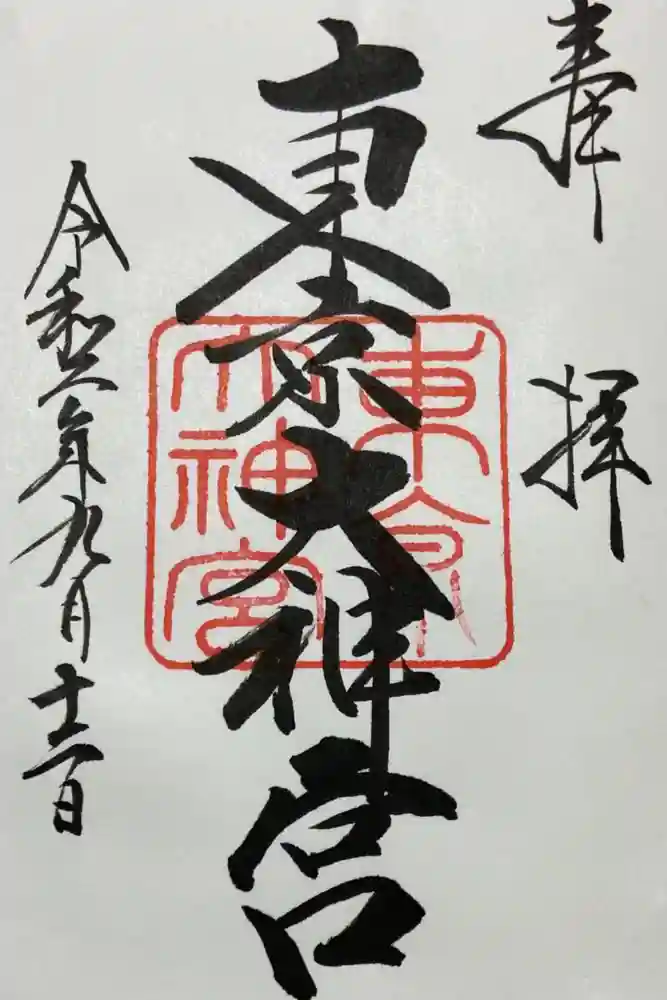 奉拝
東京大神宮
東京
大神宮
令和六年九月十二日